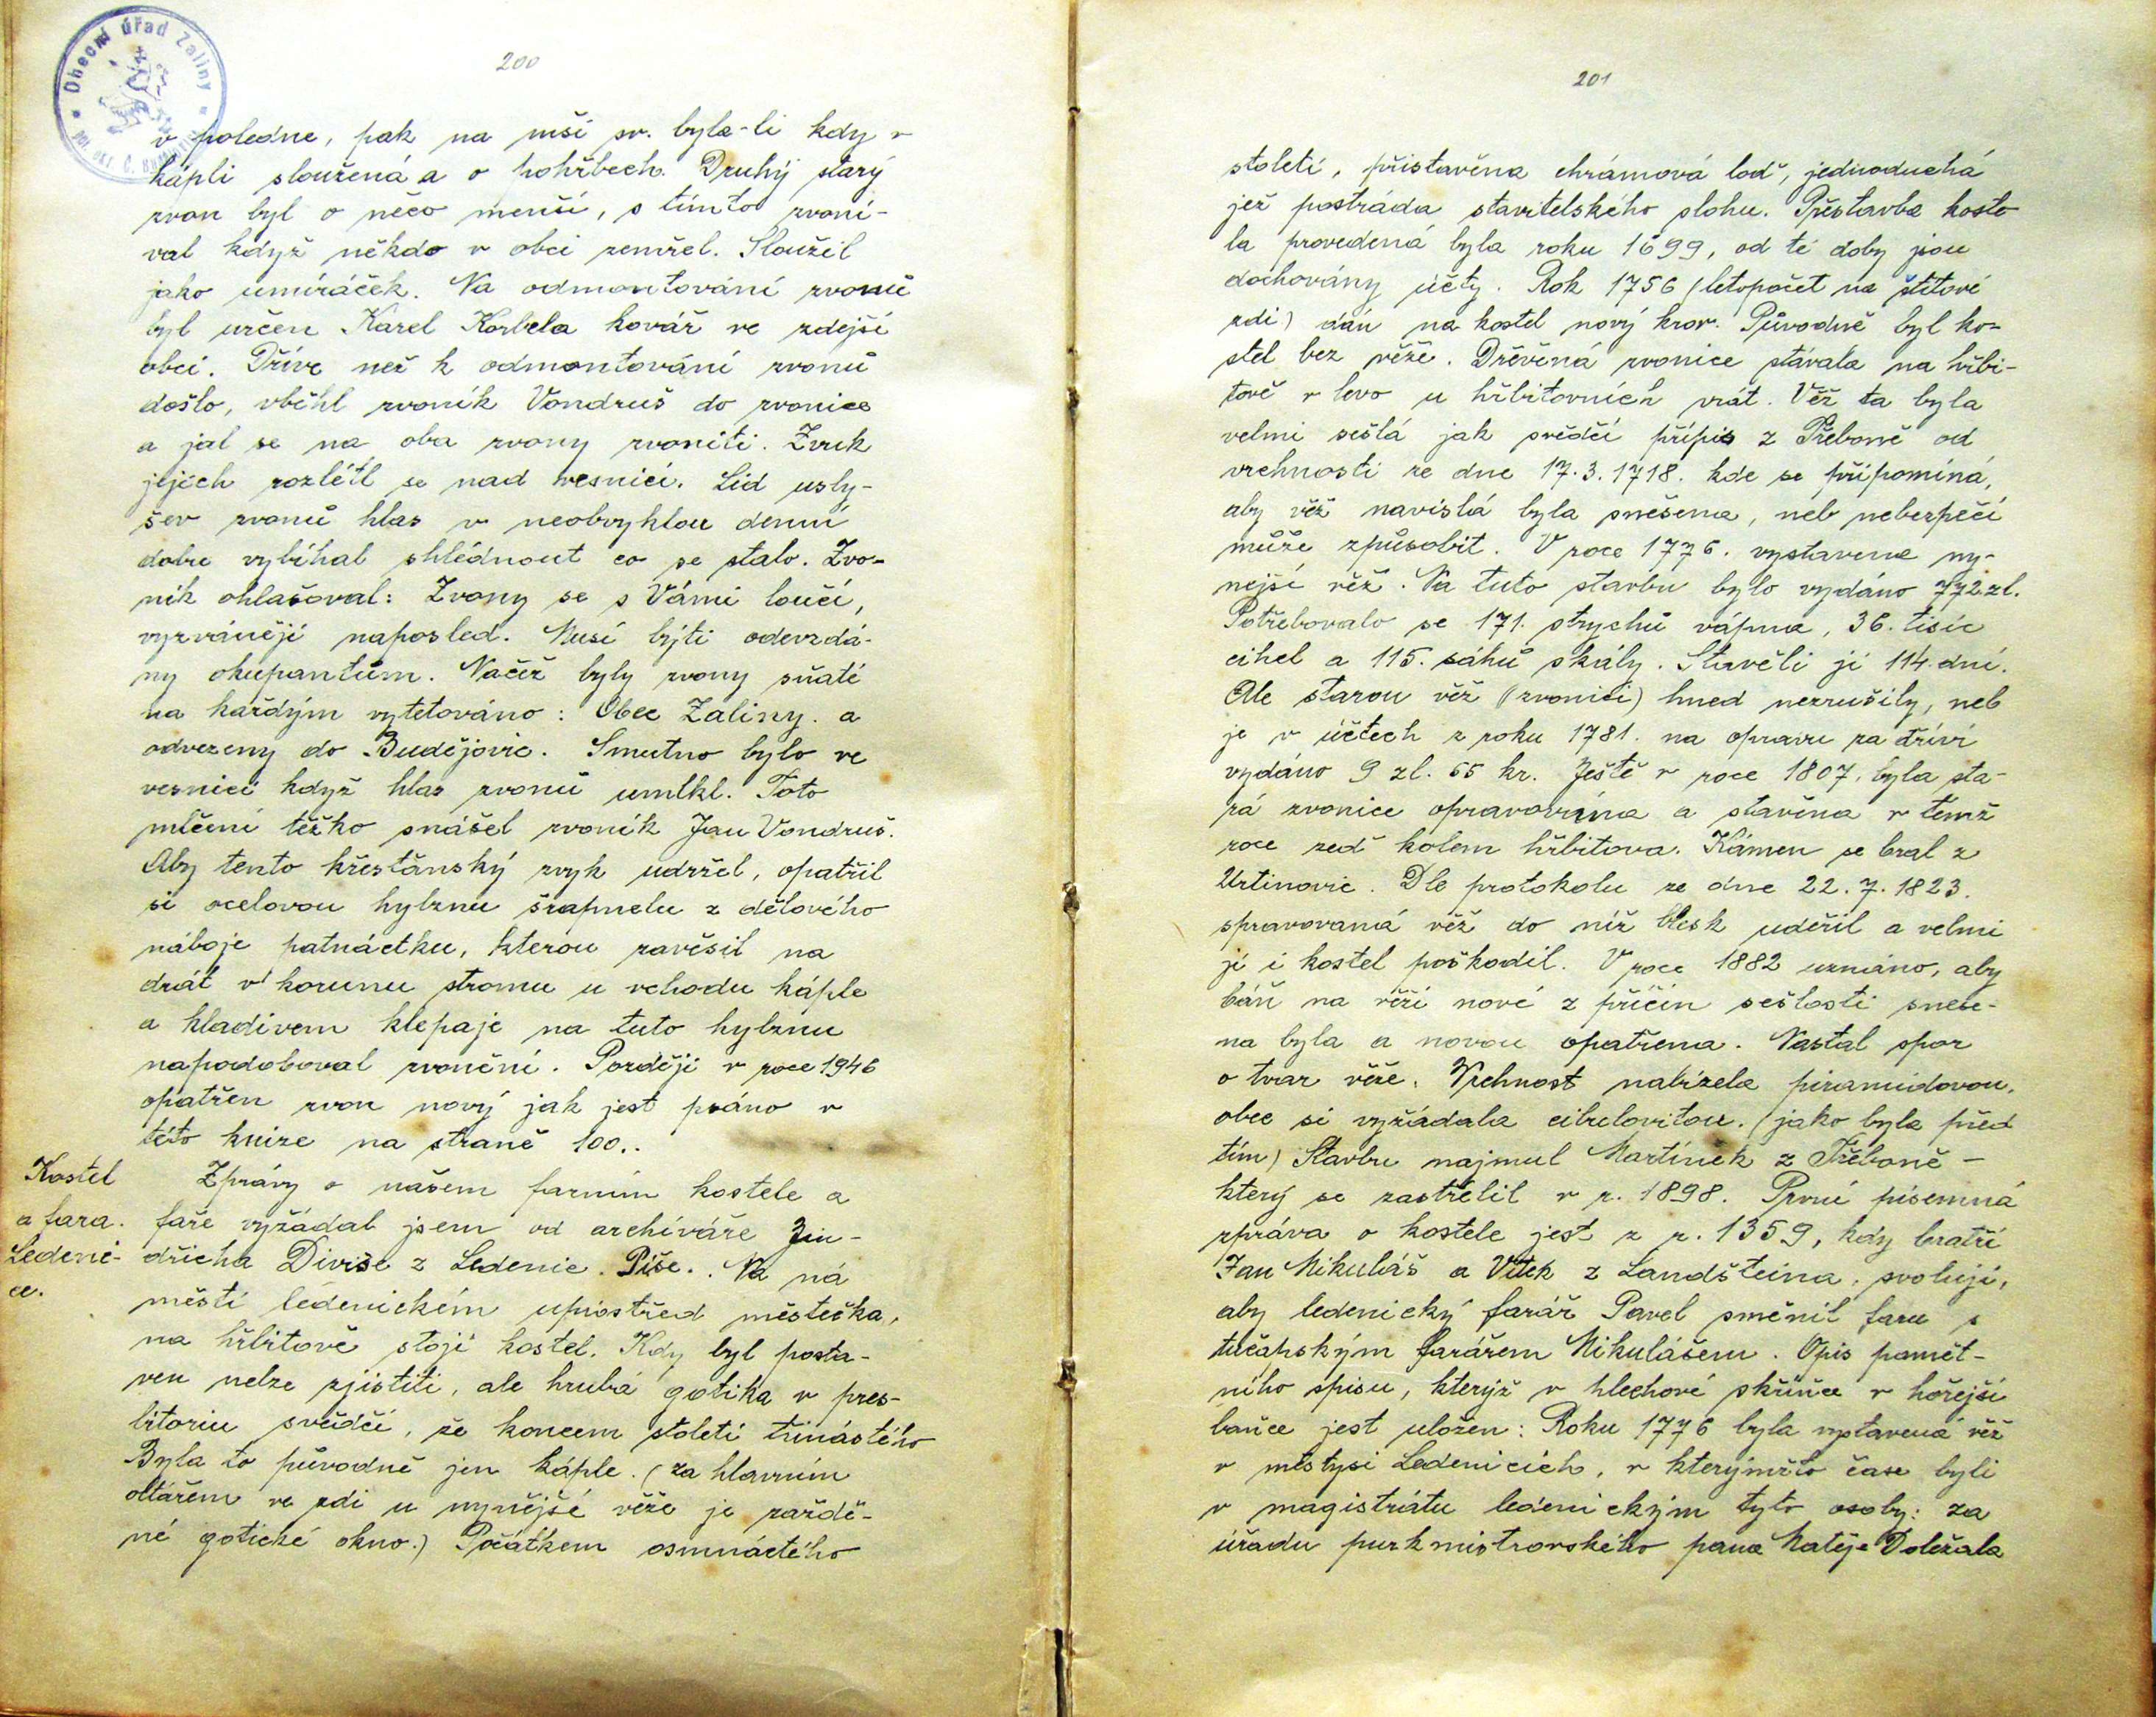 Obecní úřad Zaliny
200
v poledne, pak na mši sv. byla-li kdy v
kápli sloužená a o pohřbech. Druhý starý
zvon byl o něco menší, s tímto zvoní-
val když někdo v obci zemřel. Sloužil
jako umíráček. Na odmontování zvonů
byl určen Karel Korbela kovář ve zdejší
obci. Dříve než k odmontování zvonů
došlo, vběhl zvoník Vondruš do zvonice
a jal se na oba zvony zvoniti. Zvuk
jejich rozlétl se nad vesnicí. Lid usly-
šev zvonů hlas v neobvyklou denní
dobu vybíhal shlédnout co se stalo. Zvo-
ník ohlašoval: Zvony se s Vámi loučí,
vyzvánějí naposled. Musí býti odevzdá-
ny okupantům. Načež byly zvony sňaté
na každým vytetováno: Obec Zaliny. a
odvezeny do Budějovic. Smutno bylo ve
vesnici když hlas zvonů umlkl. Toto
mlčení těžko snášel zvoník Jan Vondruš.
Aby tento křesťánský zvyk udržel, opatřil
si ocelovou hylznu šrapnelu z dělového
náboje patnáctku, kterou zavěsil na
drát v korunu stromu u vchodu káple
a kladivem klepaje na tuto hylznu
napodoboval zvonění. Později v roce 1946
opatřen zvon nový jak jest psáno v
této knize na straně 100..
Kostel
a fara.
Ledeni-
ce.
Zprávy o našem farním kostele a
faře vyžádal jsem od archiváře Jin-
dřicha Diviše z Ledenic. Píše.. Na ná
městí ledenickém uprostřed městečka,
na hřbitově stojí kostel. Kdy byl posta-
ven nelze zjistiti, ale hrubá gotika v pres-
bitoriu svědčí, že koncem století třináctého
Byla to původně jen káple. (za hlavním
oltářem ve zdi u nynější věže je zazdě-
né gotické okno.) Počátkem osmnáctého
201
století, přistavěna chrámová loď, jednoduchá
jež postráda stavitelského slohu. Přestavba koste
la provedená byla roku 1699, od té doby jsou
dochovány účty. Rok 1756 (letopočet na štítové
zdi) dán na kostel nový krov. Původně byl ko-
stel bez věže. Dřevěná zvonice stávala na hřbi-
tově v levo u hřbitovních vrát. Věž ta byla
velmi sešlá jak svědčí přípis z Třeboně od
vrchnosti ze dne 17.3.1718. kde se připomíná,
aby věž navislá byla snešena, neb nebezpečí
může způsobit. V roce 1776. vystavena ny-
nejší věž. Na tuto stavbu bylo vydáno 772 zl.
Potřebovalo se 171. strychů vápna, 36. tisíc
cihel a 115. sáhů skály. Stavěli ji 114. dní.
Ale starou věž (zvonici) hned nezrušily, neb
je v účtech z roku 1781. na opravu za dříví
vydáno 9 zl. 55 kr. Ještě v roce 1807. byla sta-
rá zvonice opravována a stavěna v temž
roce zeď kolem hřbitova. Kámen se bral z
Vrtinovic. Dle protokolu ze dne 22.7.1823.
spravovaná věž do níž blesk udeřil a velmi
jí i kostel poškodil. V roce 1882 uznáno, aby
báň na věži nové z příčin sešlosti snese-
na byla a novou opatřena. Nastal spor
o tvar věže. Vrchnost nabízela piramidovou,
obec si vyžádala cibulovitou. (jako byla před
tím) Stavbu najmul Martínek z Třeboně -
který se zastřelil v r. 1898. První písemná
zpráva o kostele jest z r. 1359, kdy bratři
Jan Mikuláš a Vítek z Landšteina, svolují,
aby ledenický farář Pavel směnil faru s
tučapským farářem Mikulášem. Opis pamět-
ního spisu, kterýž v plechové skřínce v hořejší
baňce jest uložen: Roku 1776 byla vystavená věž
v městysi Ledenicích, v kterýmžto čase byli
v magistrátu ledenickým tyto osoby: za
úřadu purkmistrovského pana Matěje Doležala